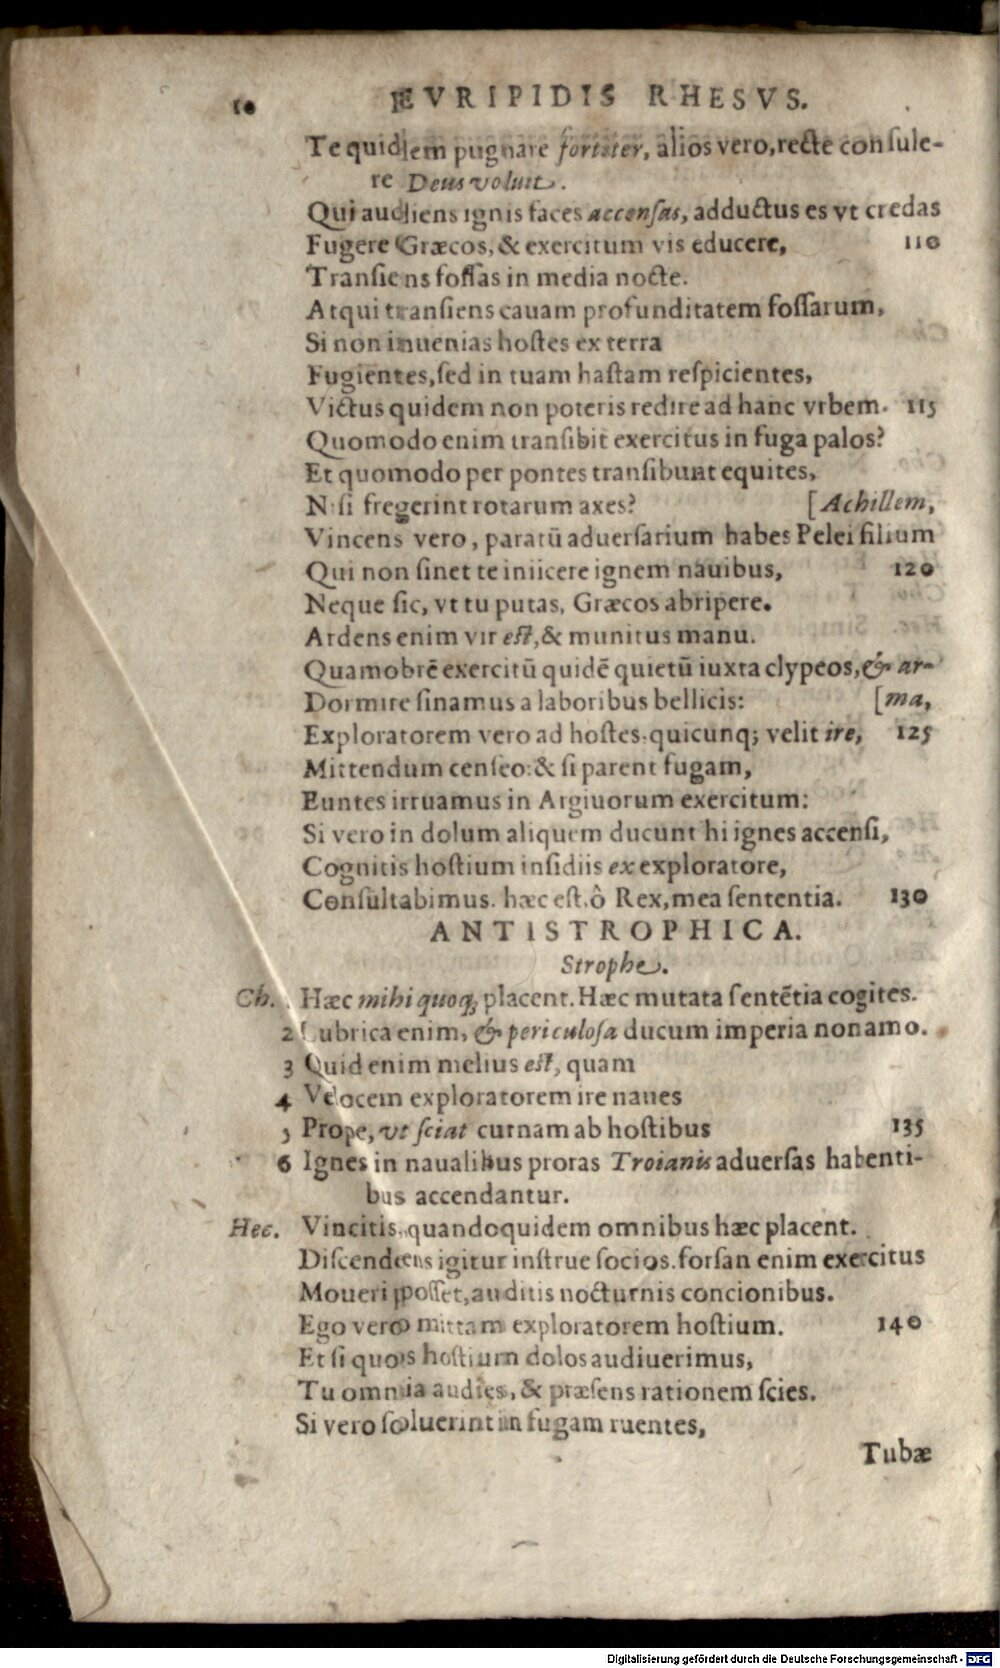 10 EVRIPIDIS RHESVS.
Te quidem pugnare fortiter, alios vero, recte consule-
re Deus voluit.
Qui audiens ignis faces accensas, adductus es vt credas
Fugere Græcos, & exercitum vis educere, 110
Transiens fossas in media nocte.
Atqui transiens cauam profunditatem fossarum,
Si non inuenias hostes ex terra
Fugientes, sed in tuam hastam respicientes,
Victus quidem non poteris redire ad hanc vrbem. 115
Quomodo enim transibit exercitus in fuga palos?
Et quomodo per pontes transibunt equites,
Nisi fregerint rotarum axes? [Achillem,
Vincens vero, paratū aduersarium habes Pelei filium
Qui non sinet te iniicere ignem nauibus, 120
Neque sic, vt tu putas, Græcos abripere.
Ardens enim vir est, & munitus manu.
Quamobrē exercitū quidē quietū iuxta clypeos, & ar-
Dormire sinamus a laboribus bellicis: [ma,
Exploratorem vero ad hostes, quicunq; velit ire, 125
Mittendum censeo: & si parent fugam,
Euntes irruamus in Argiuorum exercitum:
Si vero in dolum aliquem ducunt hi ignes accensi,
Cognitis hostium insidiis ex exploratore,
Consultabimus. hæc est, ô Rex, mea sententia. 130
ANTISTROPHICA.
Strophe.
Ch. Hæc mihi quoq; placent. Hæc mutata sentētia cogites.
2 Lubrica enim, & periculosa ducum imperia non amo.
3 Quid enim melius est, quam
4 Velocem exploratorem ire naues
5 Prope, vt sciat cur nam ab hostibus 135
6 Ignes in naualibus proras Troianis aduersas habenti-
bus accendantur.
Hec. Vincitis, quandoquidem omnibus hæc placent.
Discendens igitur instrue socios. forsan enim exercitus
Moueri posset, auditis nocturnis concionibus.
Ego vero mittam exploratorem hostium. 140
Et si quos hostium dolos audiuerimus,
Tu omnia audies, & præsens rationem scies.
Si vero soluerint in fugam ruentes,
Tubæ
Digitalisierung gefördert durch die Deutsche Forschungsgemeinschaft - DFG